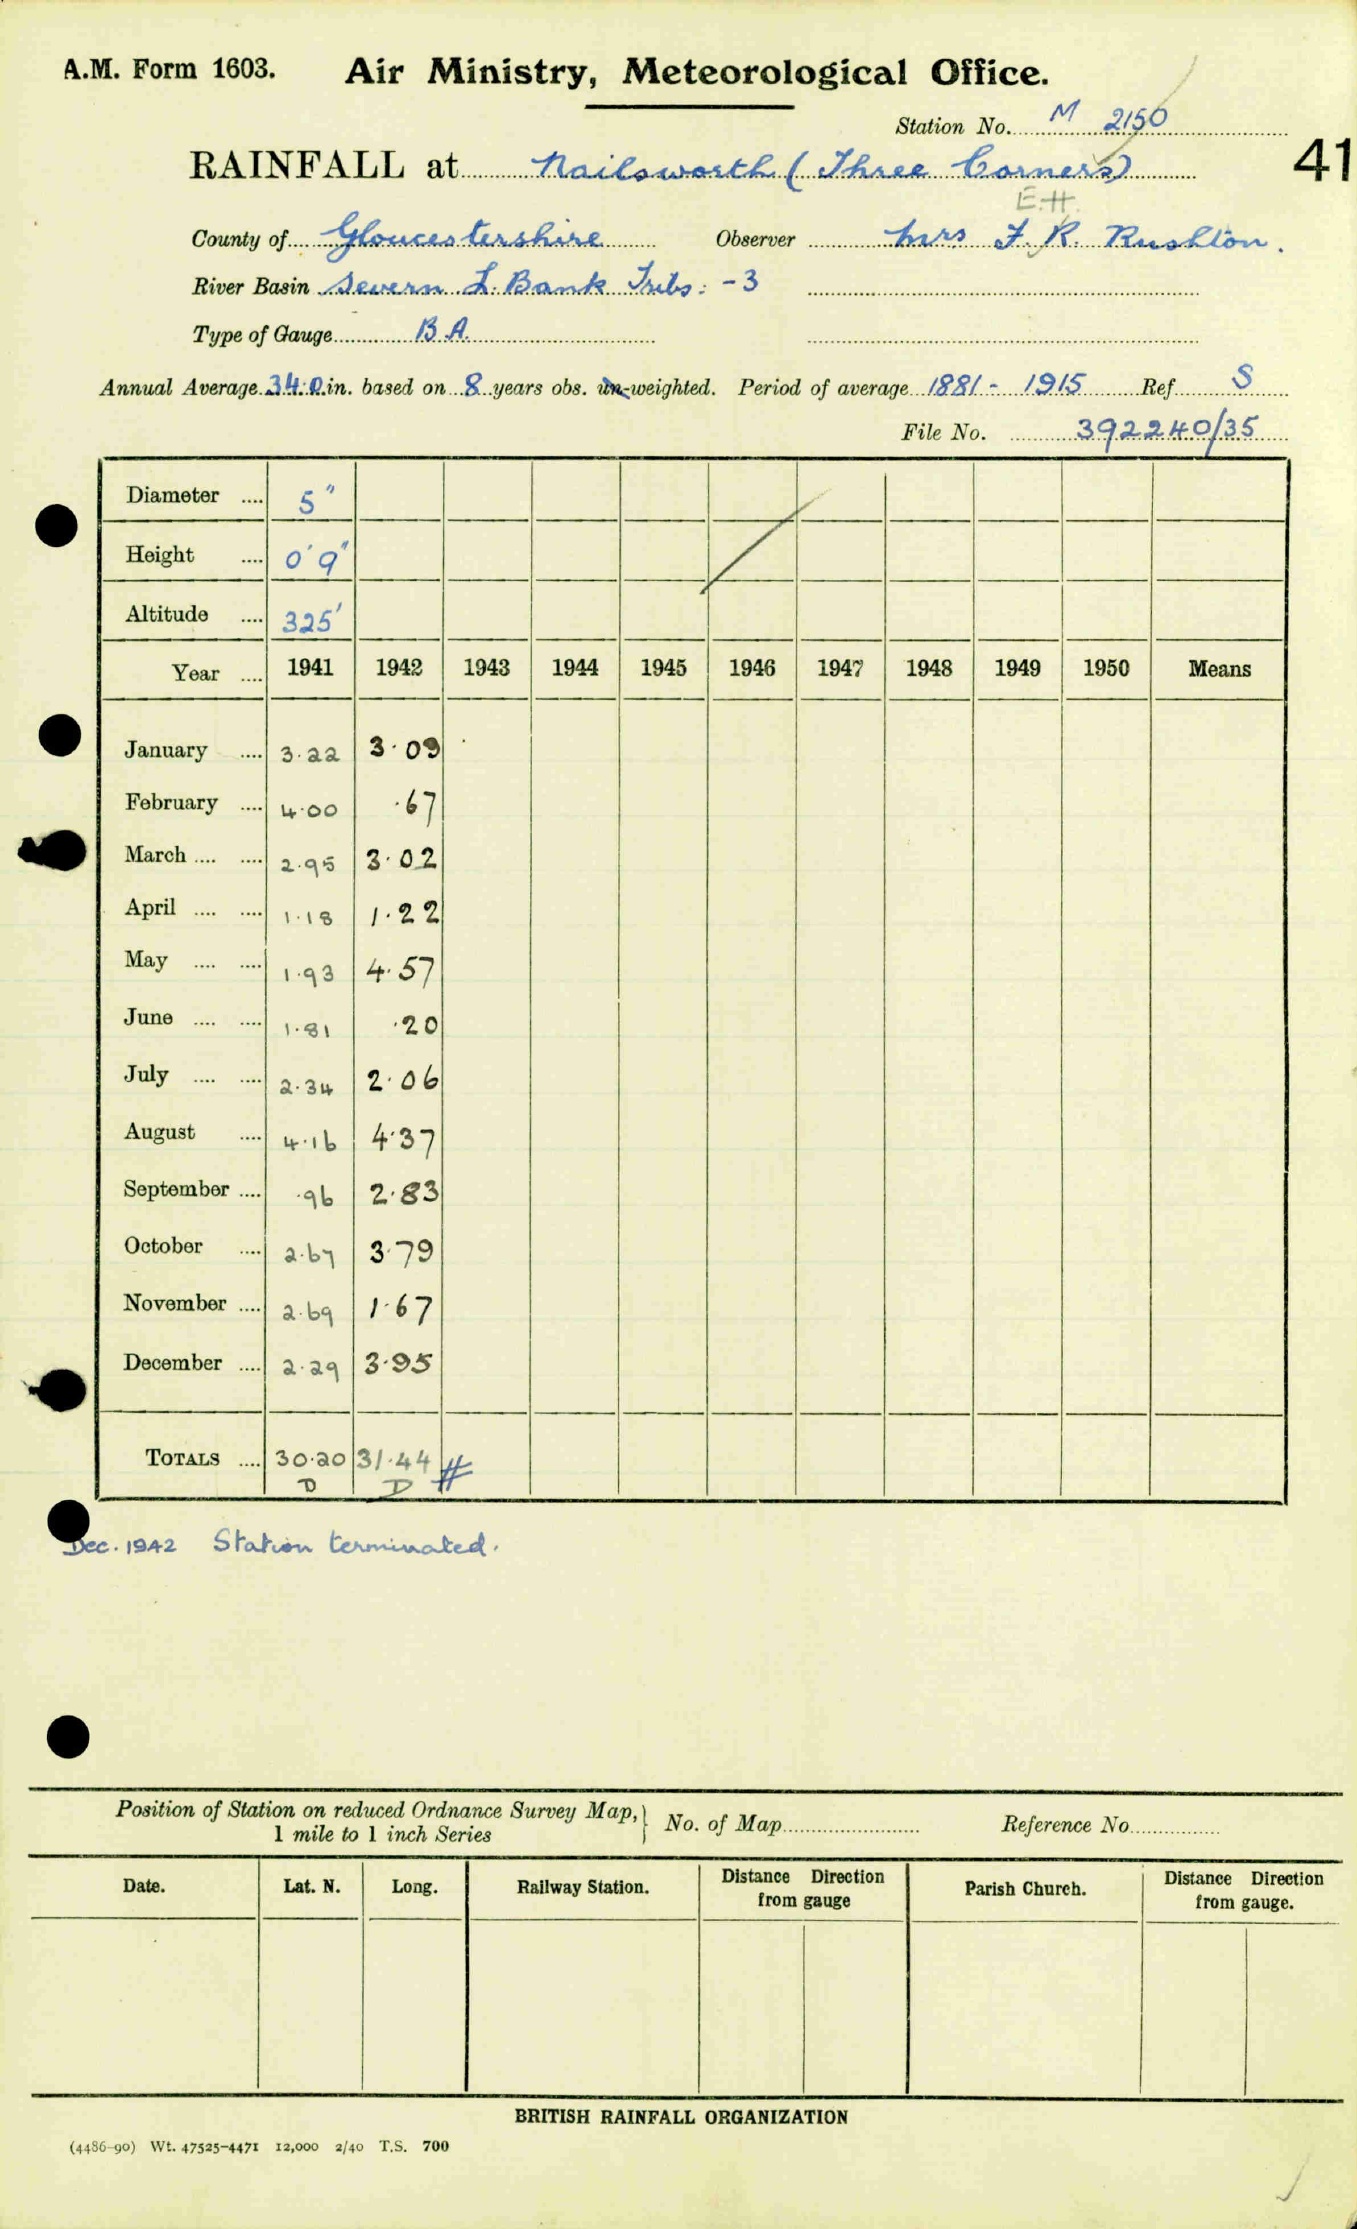 A.M. Form 1603. Air Ministry, Meteorological Office.
Station No. M 2150
41
RAINFALL at Nailsworth (Three Corners)
E.H.
County of Gloucestershire Observer Mrs F. R. Rushton.
River Basin Severn L. Bank Tribs: -3
Type of Gauge B.A.
Annual Average 34.0 in. based on 8 years obs. un-weighted. Period of average 1881 - 1915 Ref S
File No. 392240/35
Diameter .... 5"
Height .... 0' 9"
Altitude .... 325'
Year .... 1941 1942 1943 1944 1945 1946 1947 1948 1949 1950 Means
January .... 3.22 3.09
February .... 4.00 .67
March .... .... 2.95 3.02
April .... .... 1.18 1.22
May .... .... 1.93 4.57
June .... .... 1.81 .20
July .... .... 2.34 2.06
August .... 4.16 4.37
September .... .96 2.83
October .... 2.67 3.79
November .... 2.69 1.67
December .... 2.29 3.95
TOTALS .... 30.20 31.44 #
D D
Dec. 1942 Station terminated.
Position of Station on reduced Ordnance Survey Map, 1 mile to 1 inch Series } No. of Map Reference No.
Date. Lat. N. Long. Railway Station. Distance Direction from gauge Parish Church. Distance Direction from gauge.
BRITISH RAINFALL ORGANIZATION
(4486-90) Wt. 47525-4471 12,000 2/40 T.S. 700